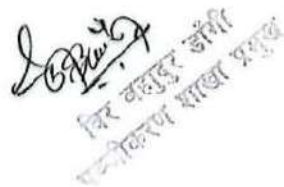 बिर बहादुर डाँगी
पञ्जीकरण शाखा प्रमुख